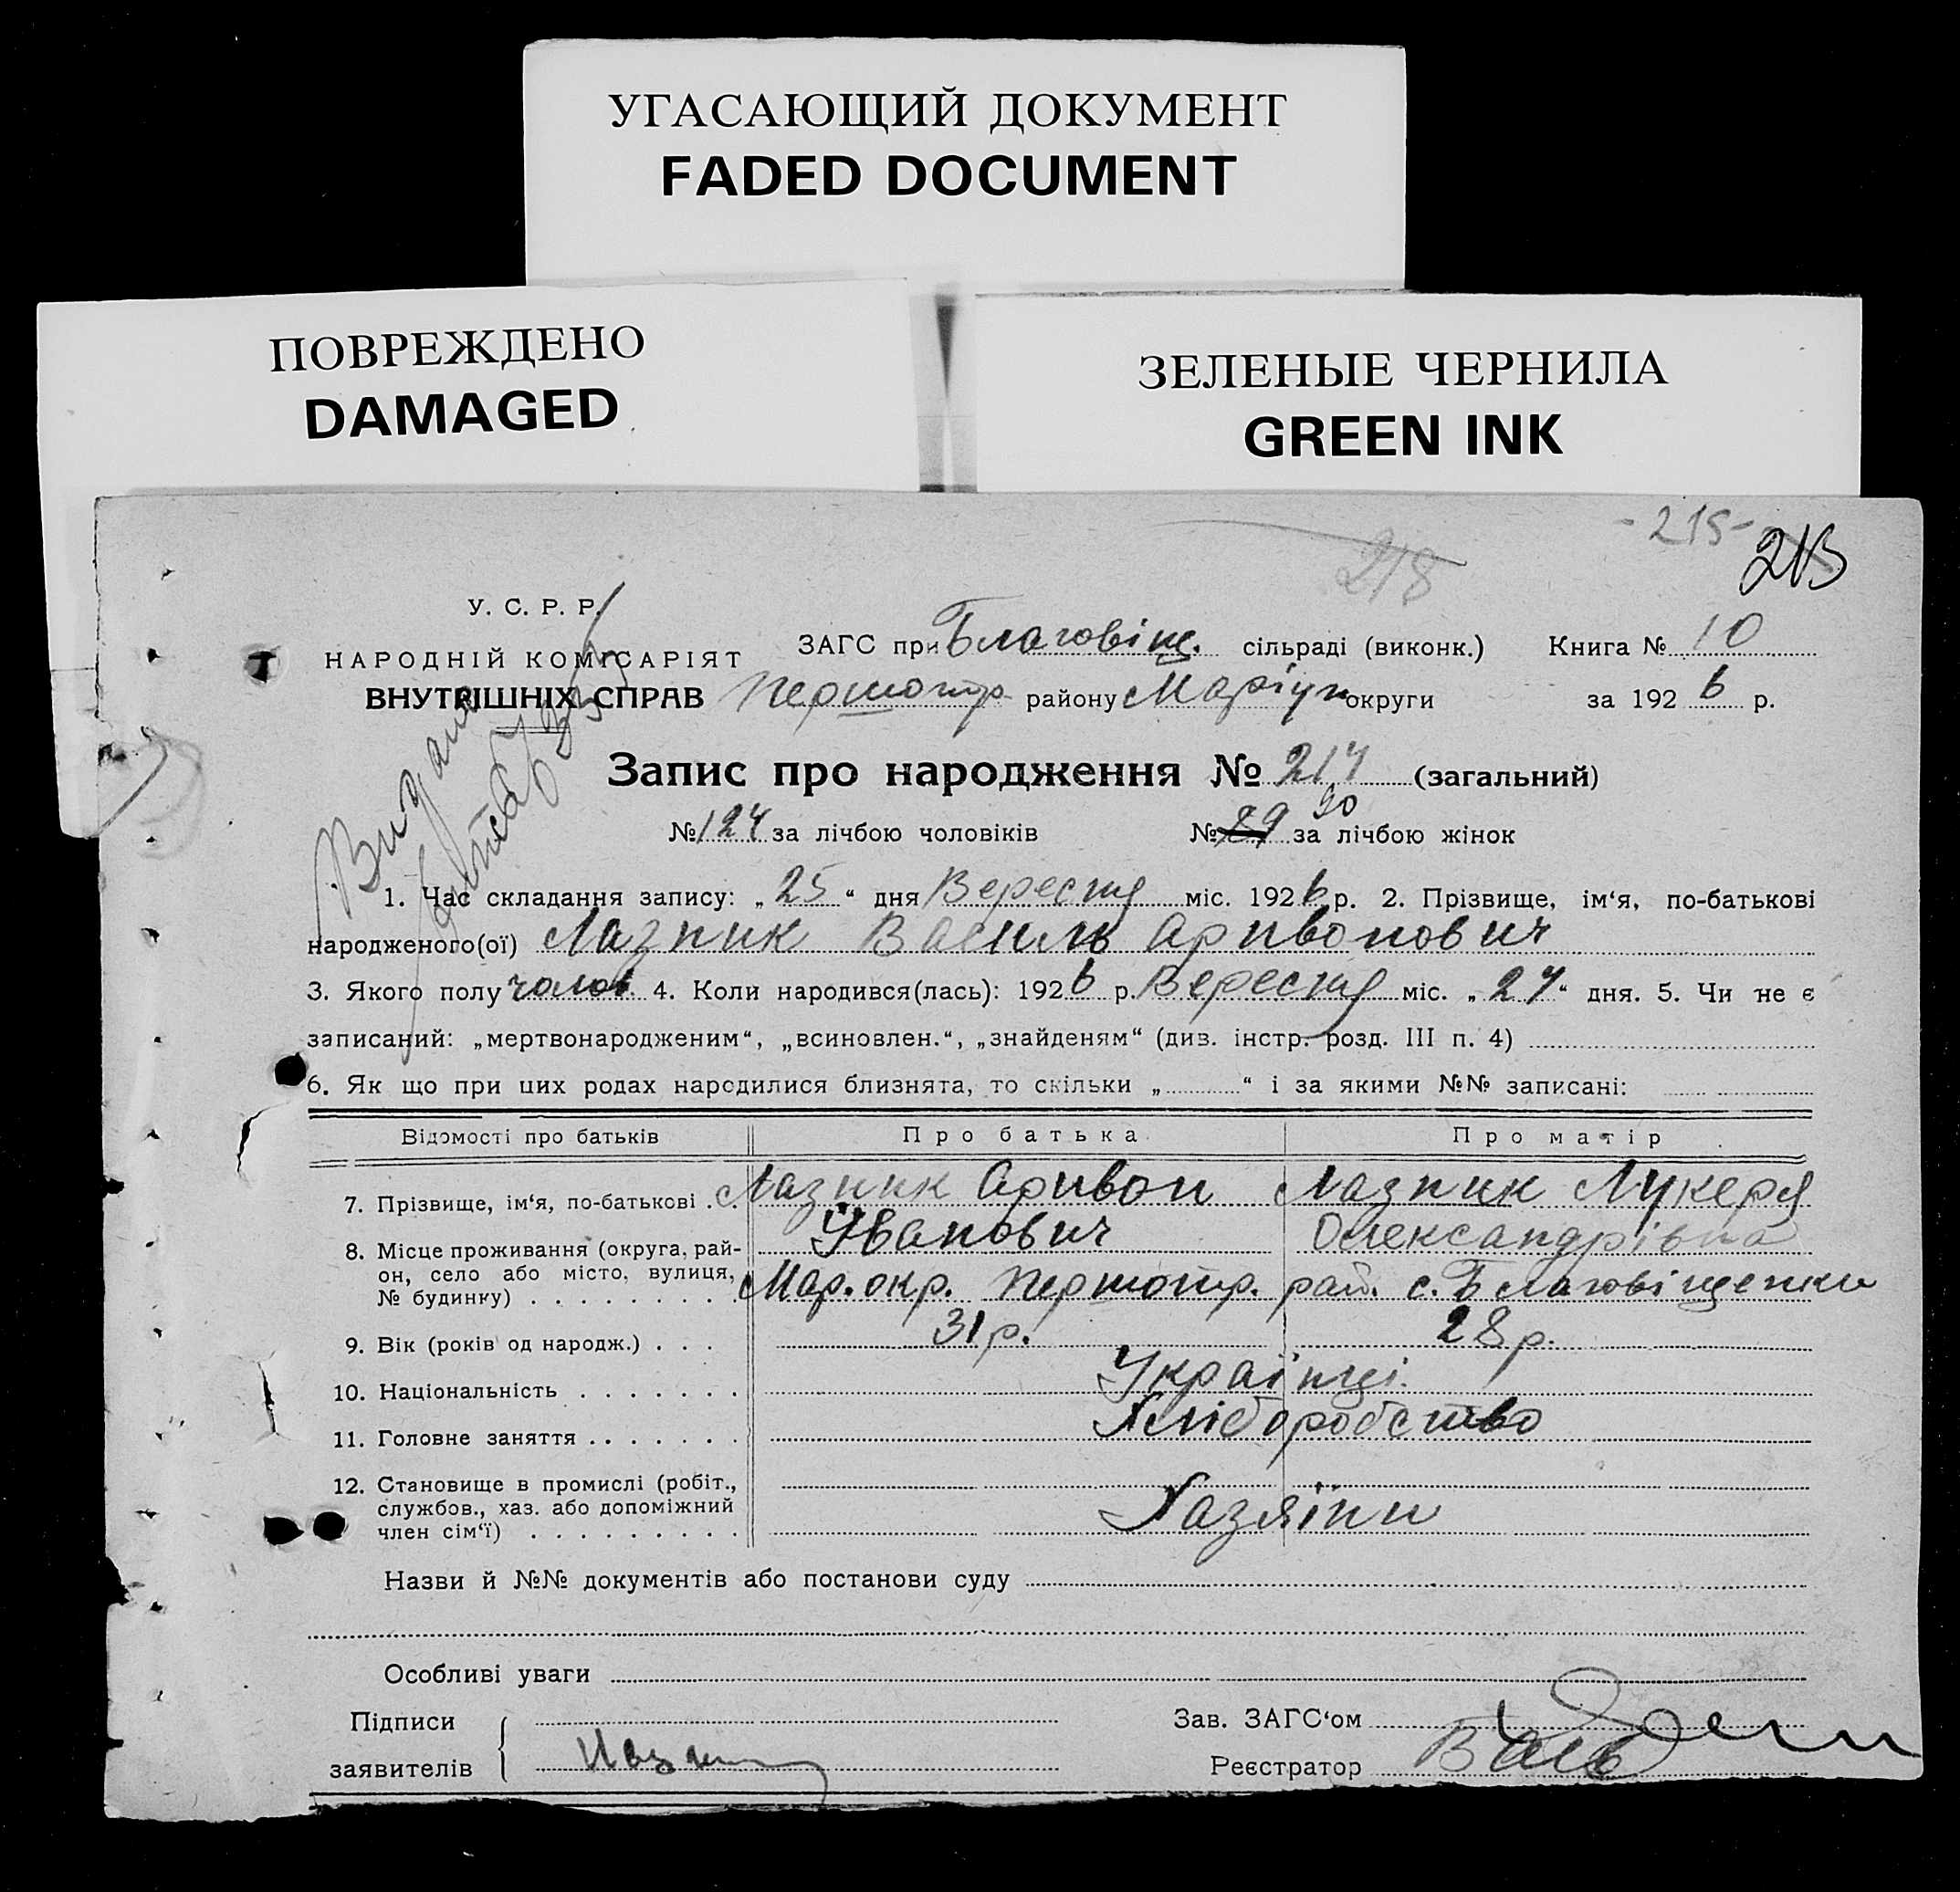 УГАСАЮЩИЙ ДОКУМЕНТ
FADED DOCUMENT
ПОВРЕЖДЕНО
DAMAGED
ЗЕЛЕНЫЕ ЧЕРНИЛА
GREEN INK
-215-
218 213
У. С. Р. Р.
НАРОДНІЙ КОМІСАРІЯТ
ВНУТРІШНІХ СПРАВ
ЗАГС при Благовіщ. сільраді (виконк.) Книга № 10
Першотр району Маріуп округи за 1926 р.
Видано
Запис про народження № 214 (загальний)
90
№ 124 за лічбою чоловіків № 89 за лічбою жінок
1. Час складання запису: „25“ дня Вересня міс. 1926 р. 2. Прізвище, ім‘я, по-батькові
народженого(ої) Лазник Василь Аривонович
3. Якого полу чолов. 4. Коли народився(лась): 1926 р. Вересня міс. „24“ дня. 5. Чи не є
записаний: „мертвонародженим“, „всиновлен.“, „знайденям“ (див. інстр. розд. III п. 4)
6. Як що при цих родах народилися близнята, то скільки „ “ і за якими №№ записані:
Відомості про батьків Про батька Про матір
7. Прізвище, ім‘я, по-батькові . . Лазник Аривон Лазник Лукеря
Іванович Олександрівна
8. Місце проживання (округа, рай-
он, село або місто, вулиця,
№ будинку) . . . . . . . . Мар. окр. Першотр. рай. с. Благовіщенки
9. Вік (років од народж.) . . . 31 р. 28 р.
10. Національність . . . . . . . Українці.
11. Головне заняття . . . . . . . Хліборобство
12. Становище в промислі (робіт.,
службов., хаз. або допоміжний
член сім‘ї) . . . . . . . . . Хазяїни
Назви й №№ документів або постанови суду
Особливі уваги
Підписи Зав. ЗАГС‘ом
заявителів Реєстратор